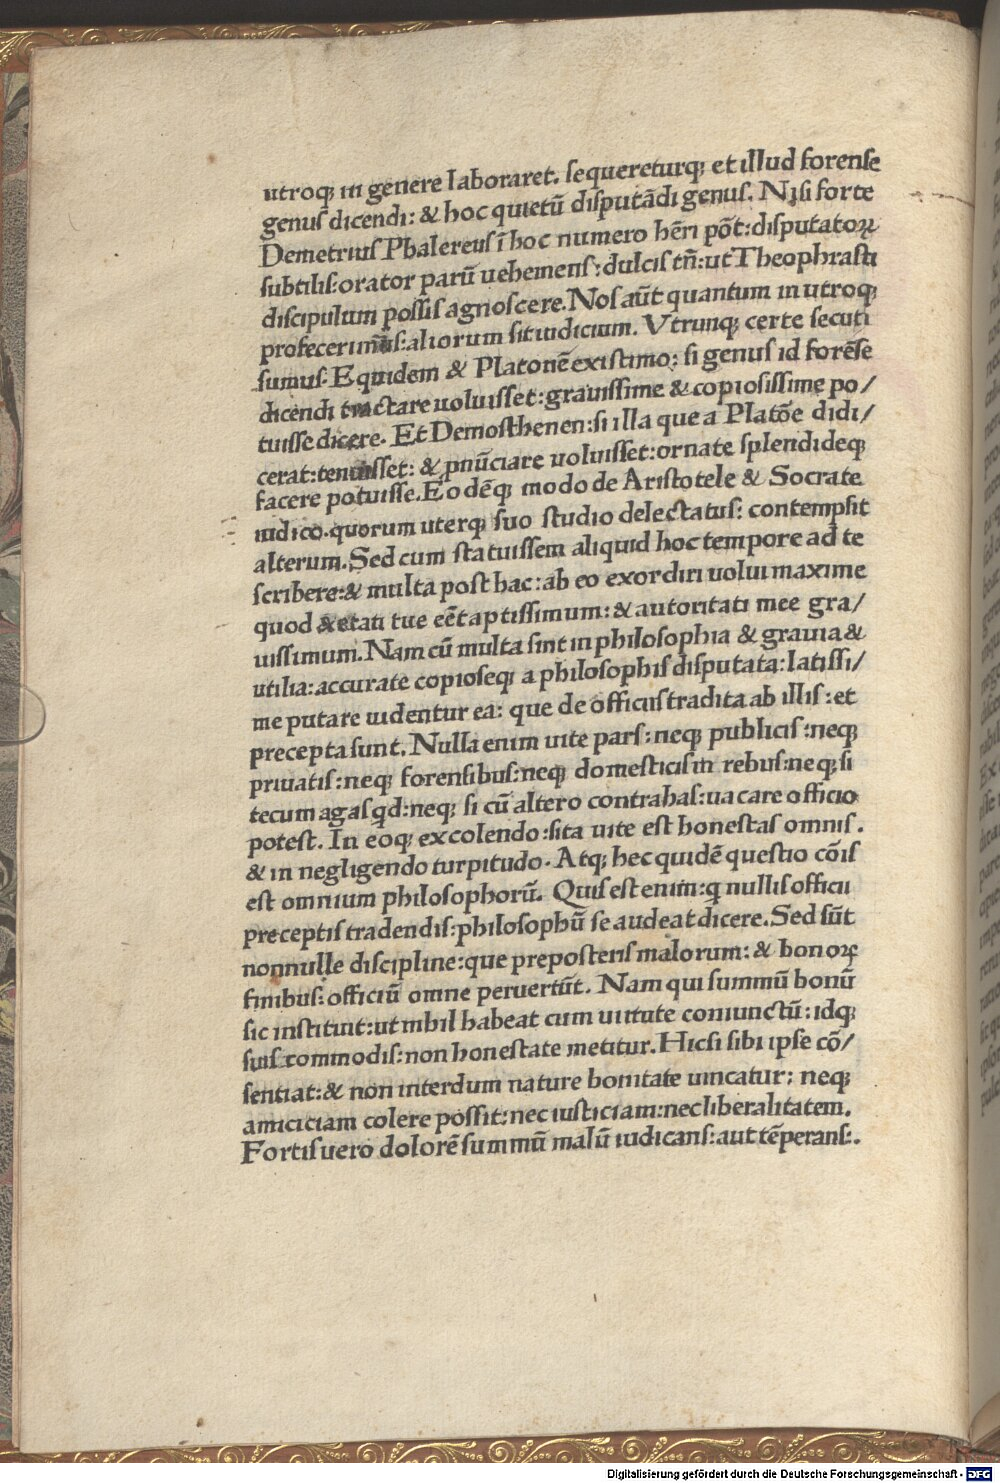 utroq; in genere laboraret. sequereturq; et illud forense
genus dicendi: & hoc quietū disputādi genus. Nisi forte
Demetrius Phalereus ī hoc numero hēri pōt: disputatoꝝ
subtilis: orator parū uehemens: dulcis tñ: ut Theophrasti
discipulum possis agnoscere. Nos aūt quantum in utroq;
profecerimus: aliorum sit iudicium. Utrunq; certe secuti
sumus. Equidem & Platonē existimo: si genus id forēse
dicendi tractare uoluisset: grauissime & copiosissime po/
tuisse dicere. Et Demosthenen: si illa que a Platōe didi/
cerat: tenuisset: & ꝓnūciare uoluisset: ornate splendideq;
facere potuisse. Eodēq; modo de Aristotele & Socrate
iudico. quorum uterq; suo studio delectatus: contempsit
alterum. Sed cum statuissem aliquid hoc tempore ad te
scribere: & multa post hac: ab eo exordiri uolui maxime
quod & etati tue eēt aptissimum: & autoritati mee gra/
uissimum. Nam cū multa sint in philosophia & grauia &
utilia: accurate copioseq; a philosophis disputata: latissi/
me putare uidentur ea: que de officiis tradita ab illis: et
precepta sunt. Nulla enim uite pars: neq; publicis: neq;
priuatis: neq; forensibus: neq; domesticis in rebus: neq; si
tecum agas qd: neq; si cū altero contrahas: uacare officio
potest. In eoq; excolendo: sita uite est honestas omnis.
& in negligendo turpitudo. Atq; hec quidē questio cōis
est omnium philosophorū. Quis est enim: q nullis officii
preceptis tradendis: philosophū se audeat dicere. Sed sūt
nonnulle discipline: que preposteris malorum: & bonoꝝ
finibus: officiū omne peruertūt. Nam qui summū bonū
sic instituit: ut nihil habeat cum uirtute coniunctū: idq;
suis commodis: non honestate metitur. Hic si sibi ipse cō/
sentiat: & non interdum nature bonitate uincatur: neq;
amiciciam colere possit: nec iusticiam: nec liberalitatem.
Fortis uero dolorē summū malū iudicans: aut tēperans:.
Digitalisierung gefördert durch die Deutsche Forschungsgemeinschaft - DFG